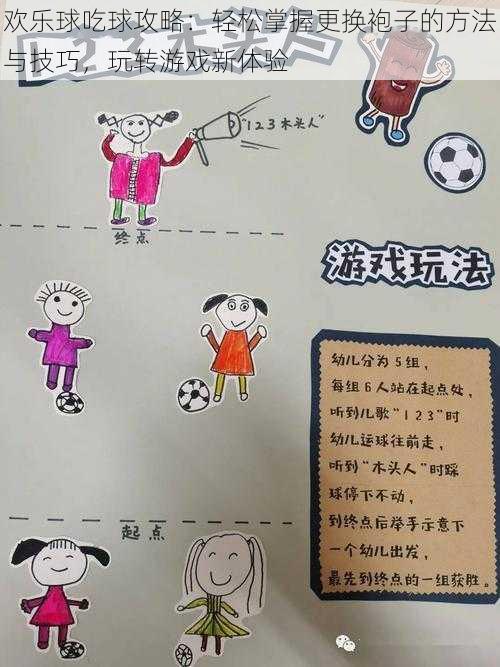 欢乐球吃球攻略：轻松掌握更换袍子的方法
与技巧，玩转游戏新体验
"123木头人"
终点
游戏玩法
幼儿分为5组，
每组6人站在起点处，
听到儿歌"123"时
幼儿运球往前走，
听到"木头人"时踩
球停下不动，
到终点后举手示意下
一个幼儿出发，
最先到终点的一组获胜。
起点